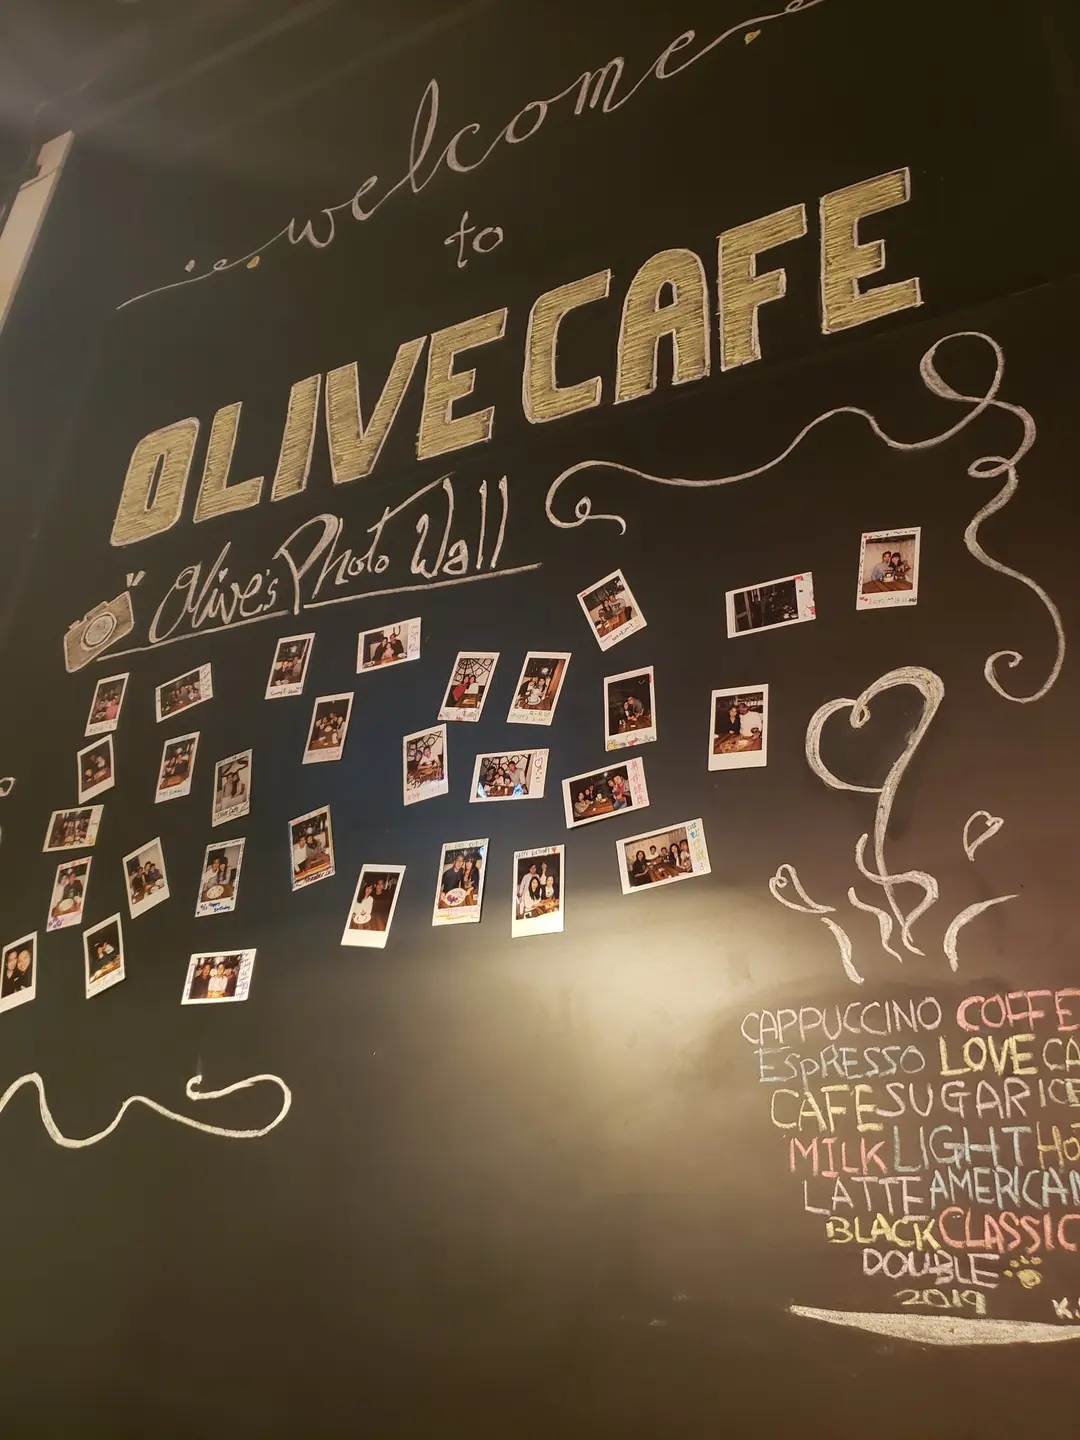 welcome
to
OLIVE CAFE
Olive's Photo Wall
CAPPUCCINO COFFE
ESPRESSO LOVE CA
CAFE SUGAR ICE
MILK LIGHT HOT
LATTE AMERICAN
BLACK CLASSIC
DOUBLE
2019